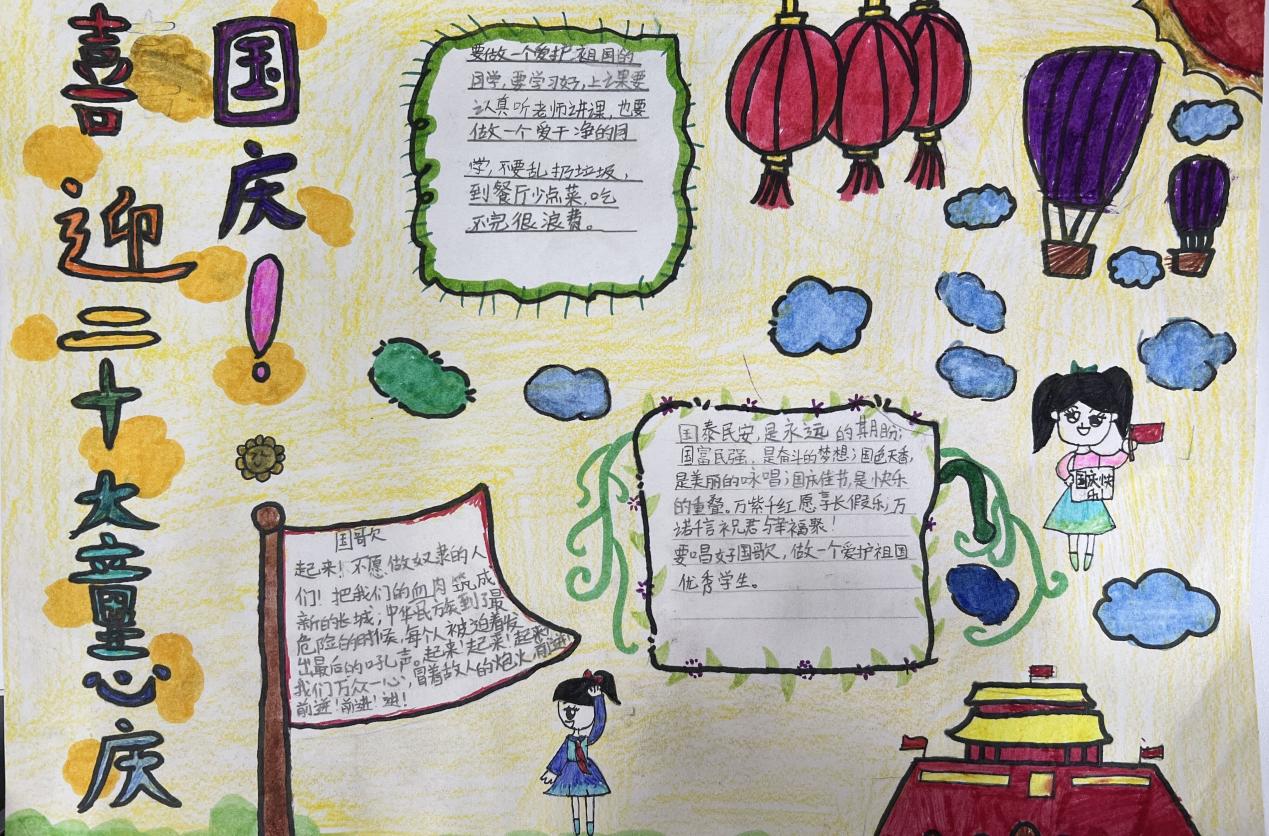 喜迎二十大童心庆
国庆！
要做一个爱护祖国的
同学，要学习好，上课要
认真听老师讲课，也要
做一个爱干净的同
学，不要乱扔垃圾，
到餐厅少点菜，吃
不完很浪费。
国泰民安，是永远的期盼；
国富民强，是奋斗的梦想；国色天香，
是美丽的咏唱；国庆佳节，是快乐
的重叠。万紫千红愿享长假乐，万
语千言祝君与幸福聚！
要唱好国歌，做一个爱护祖国
优秀学生。
国庆快
乐！
国歌
起来！不愿做奴隶的人
们！把我们的血肉筑成
新的长城，中华民族到了最
危险的时候，每个人被迫着发
出最后的吼声。起来！起来！起来！
我们万众一心，冒着敌人的炮火，前进！
前进！前进！进！